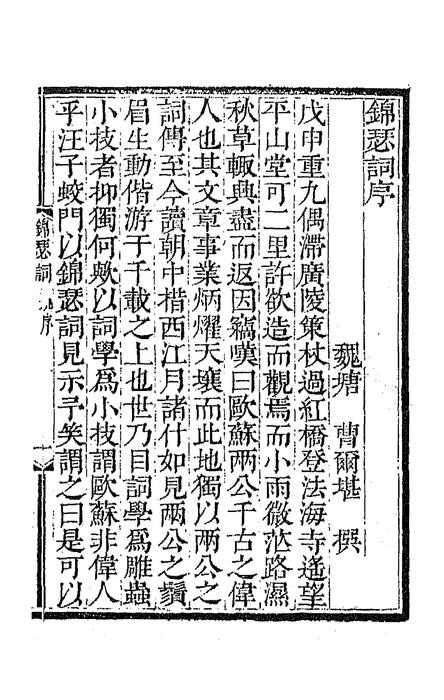 錦瑟詞序
魏塘 曹爾堪 撰
戊申重九偶滯廣陵策杖過紅橋登法海寺遙望
平山堂可二里許欲造而觀焉而小雨微茫路濕
秋草輒興盡而返因竊嘆曰歐蘇兩公千古之偉
人也其文章事業炳燿天壤而此地獨以兩公之
詞傳至今讀朝中楷西江月諸什如見兩公之鬚
眉生動偕游于千載之上也世乃目詞學爲雕蟲
小技者抑獨何歟以詞學爲小技謂歐蘇非偉人
乎汪子蛟門以錦瑟詞見示予笑謂之曰是可以
錦瑟詞 序